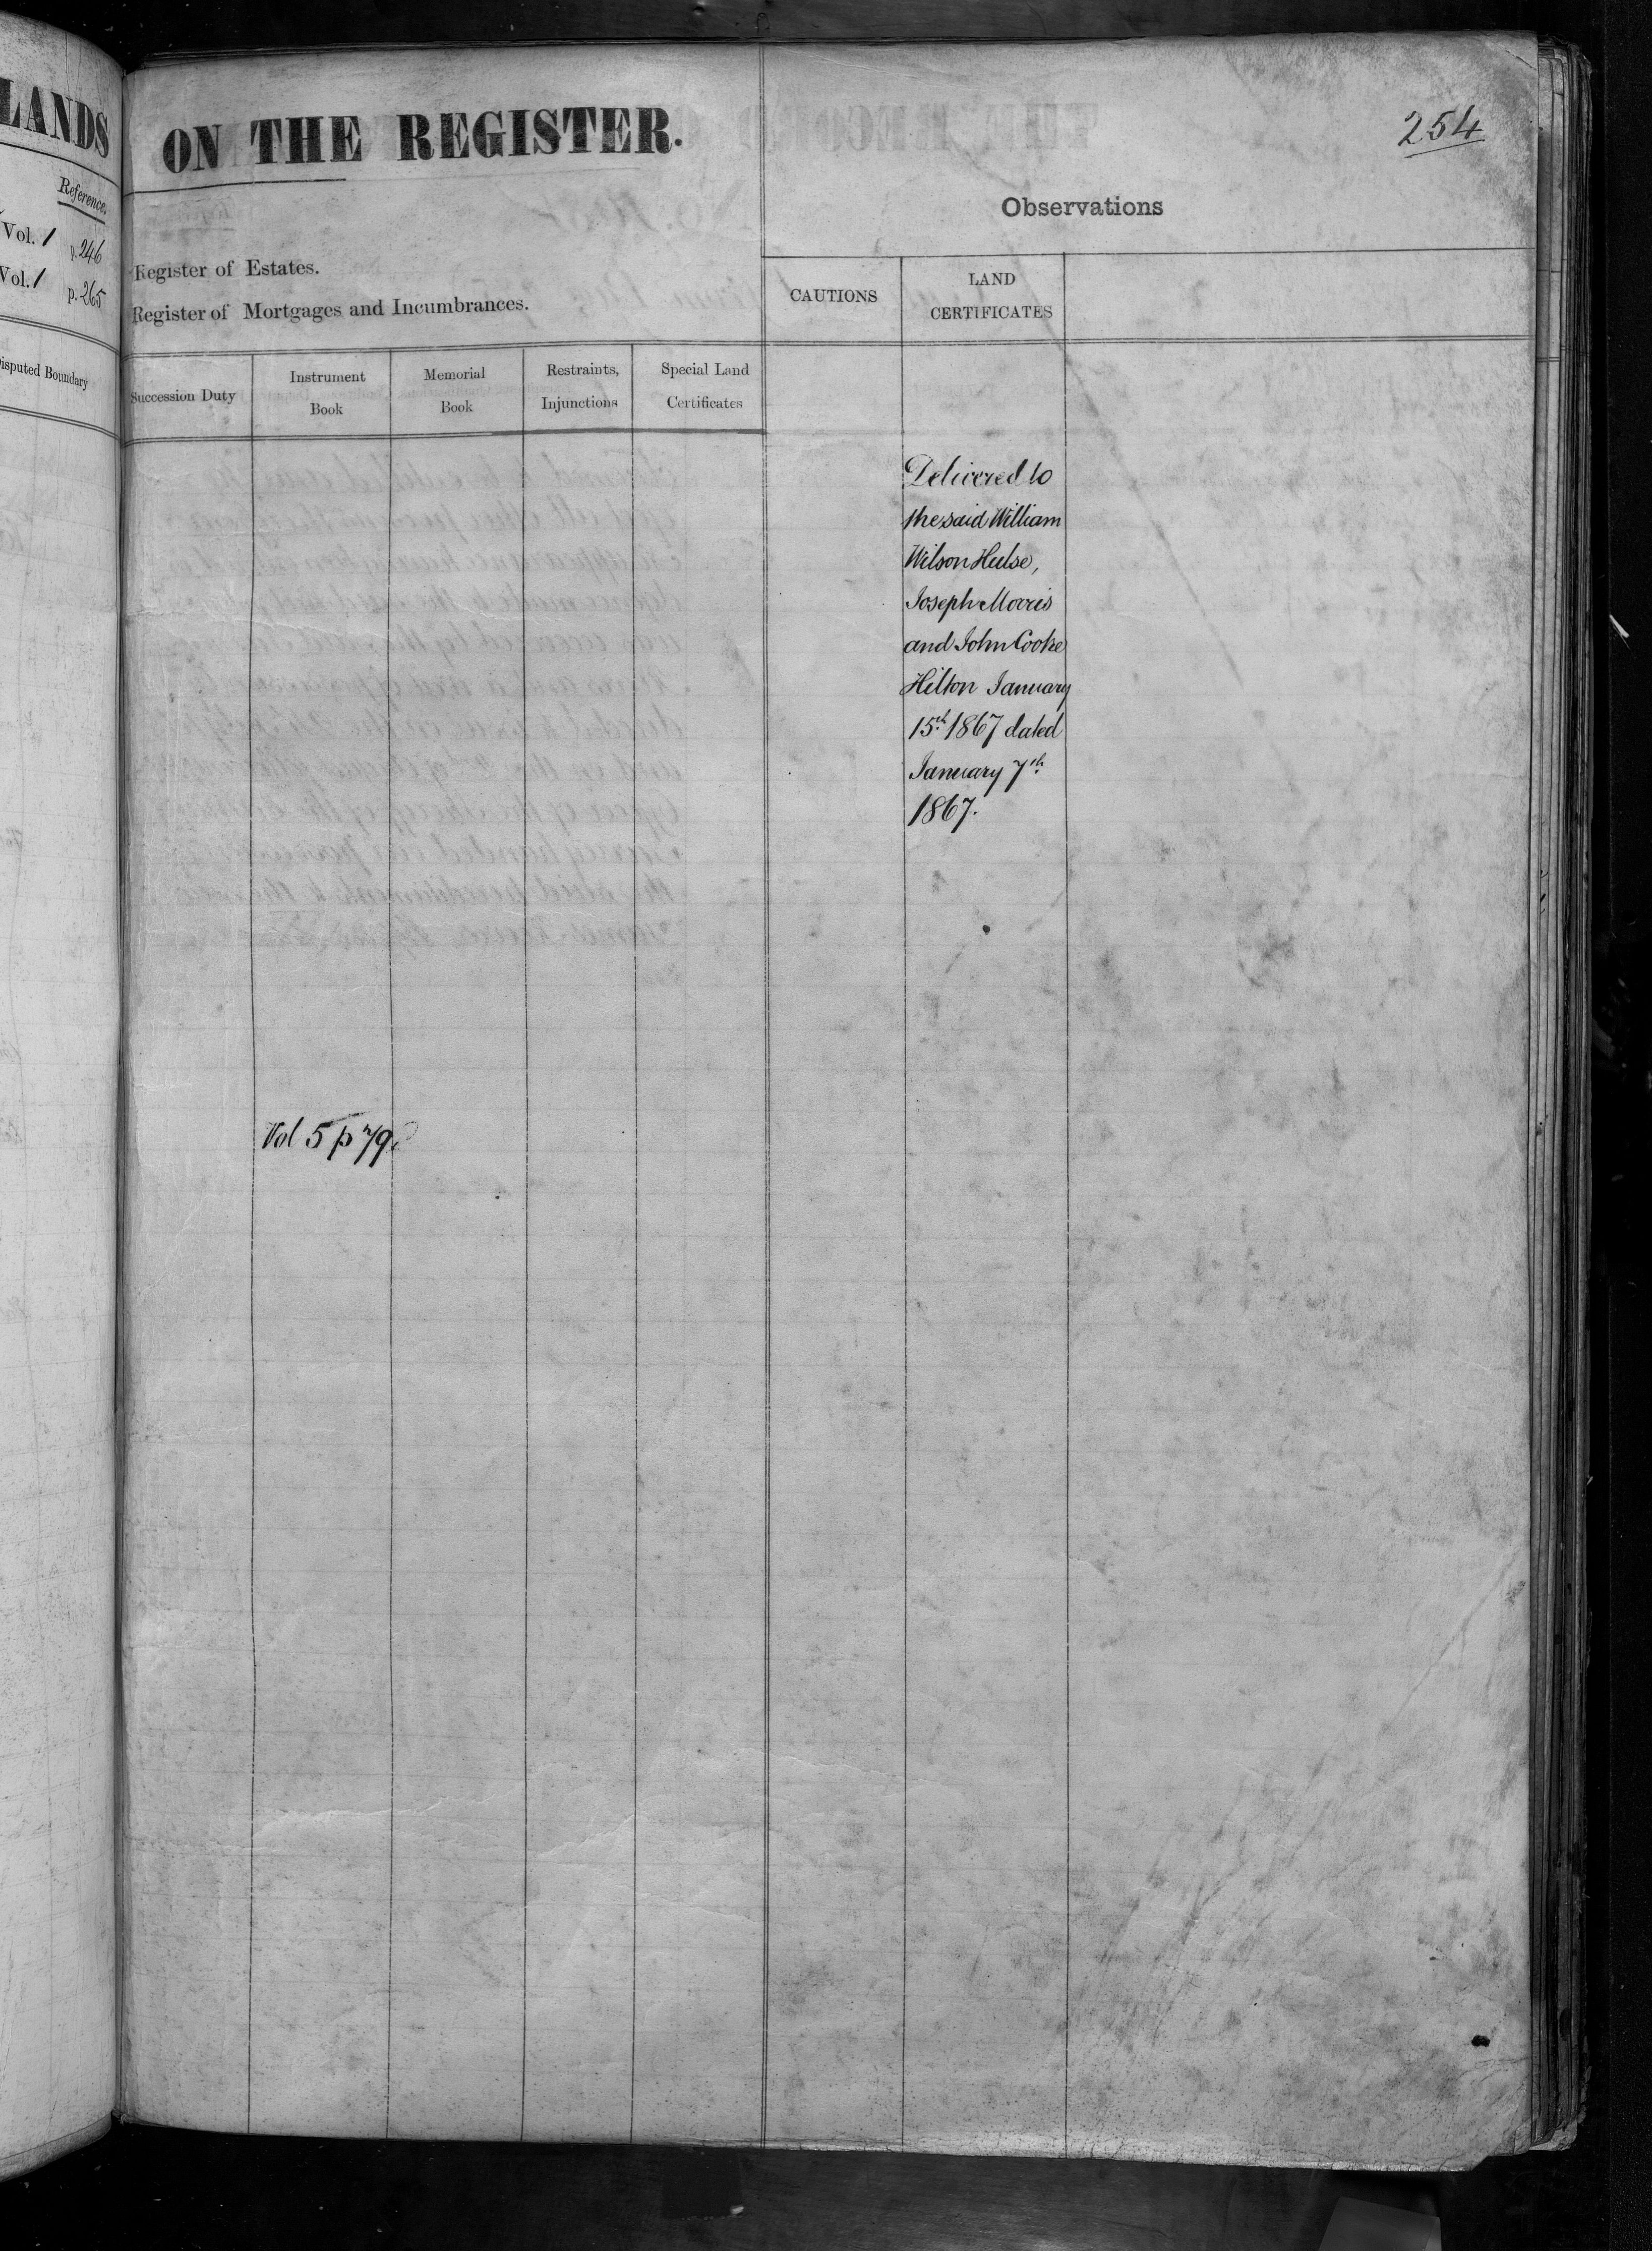 LANDS
Reference.
Vol. 1 p. 246
Vol. 1 p. 265
Disputed Boundary
254
ON THE REGISTER.
Observations
Register of Estates.
Register of Mortgages and Incumbrances.
CAUTIONS
LAND
CERTIFICATES
Succession Duty
Instrument
Book
Memorial
Book
Restraints,
Injunctions
Special Land
Certificates
Delivered to
the said William
Wilson Hulse,
Joseph Morris
and John Cooke
Hilton January
15th 1867 dated
January 7th
1867.
Vol 5 p 79.